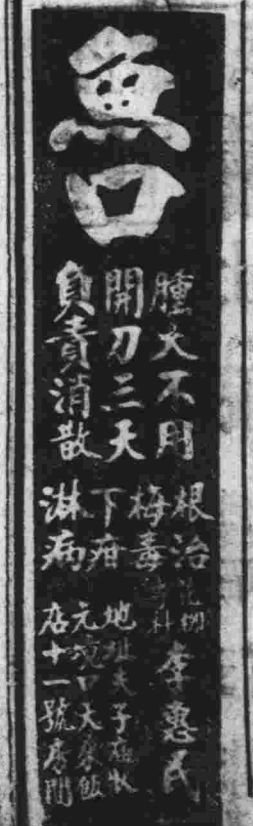 魚口
腫大不用
開刀三天
負責消散
根治
梅毒
下疳
淋病
花柳
專科
李惠民
地址夫子廟
元境口大來飯
店十一號房間